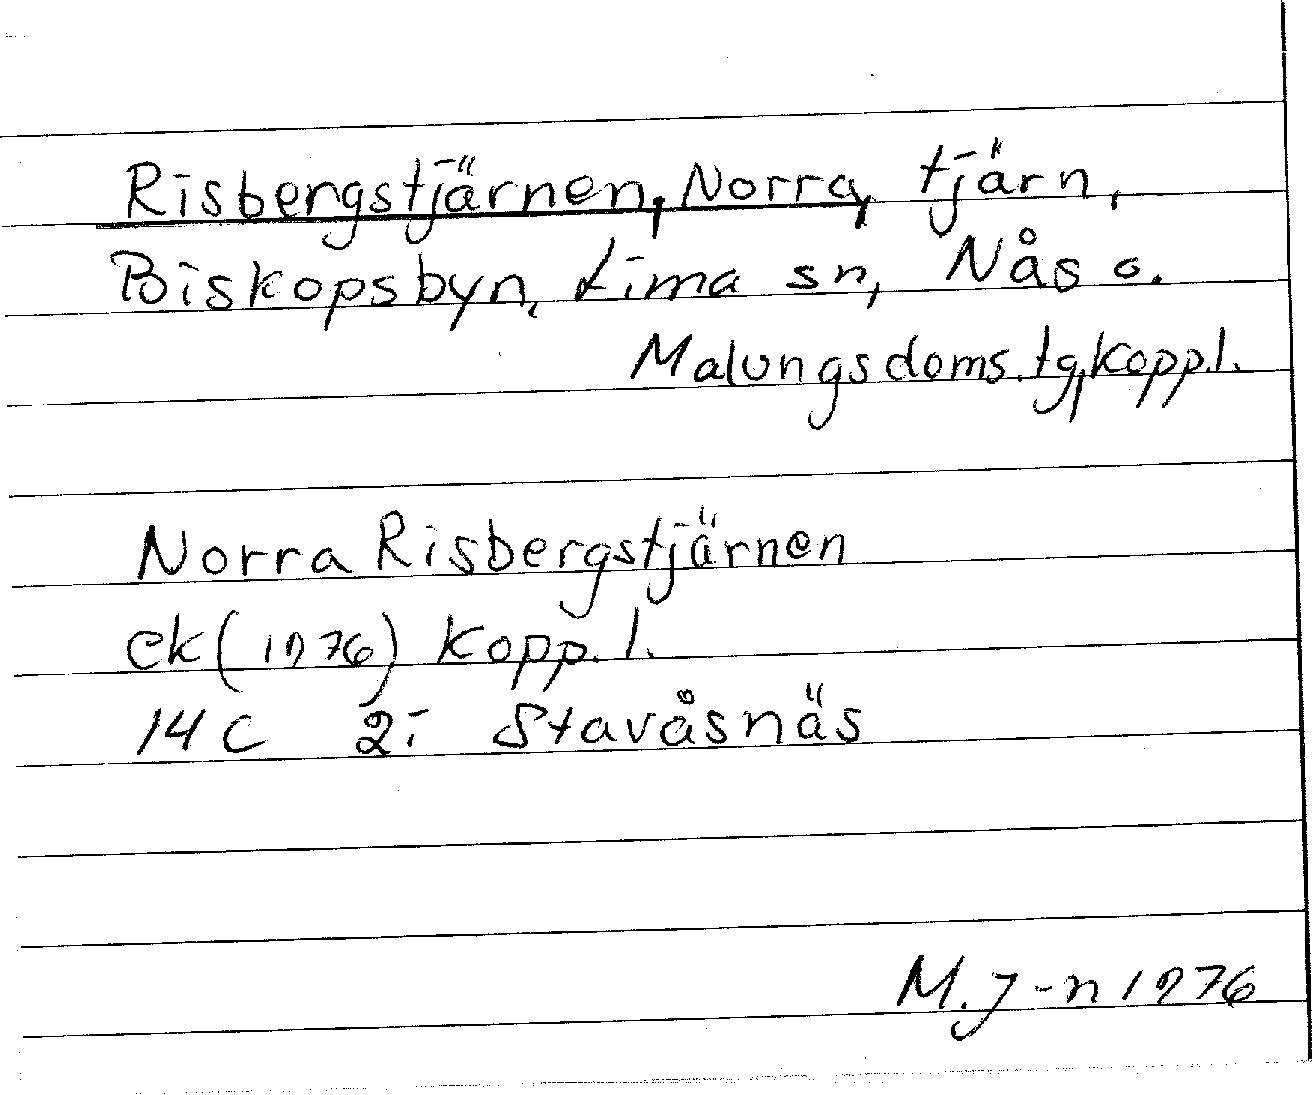 Risbergstjärnen, Norra, tjärn,
Biskopsbyn, Lima sn, Nås o.
Malungs doms.tg, Kopp.l.
Norra Risbergstjärnen
ek (1976) Kopp. l.
14 C 2i Stavåsnäs
M. J-n 1976